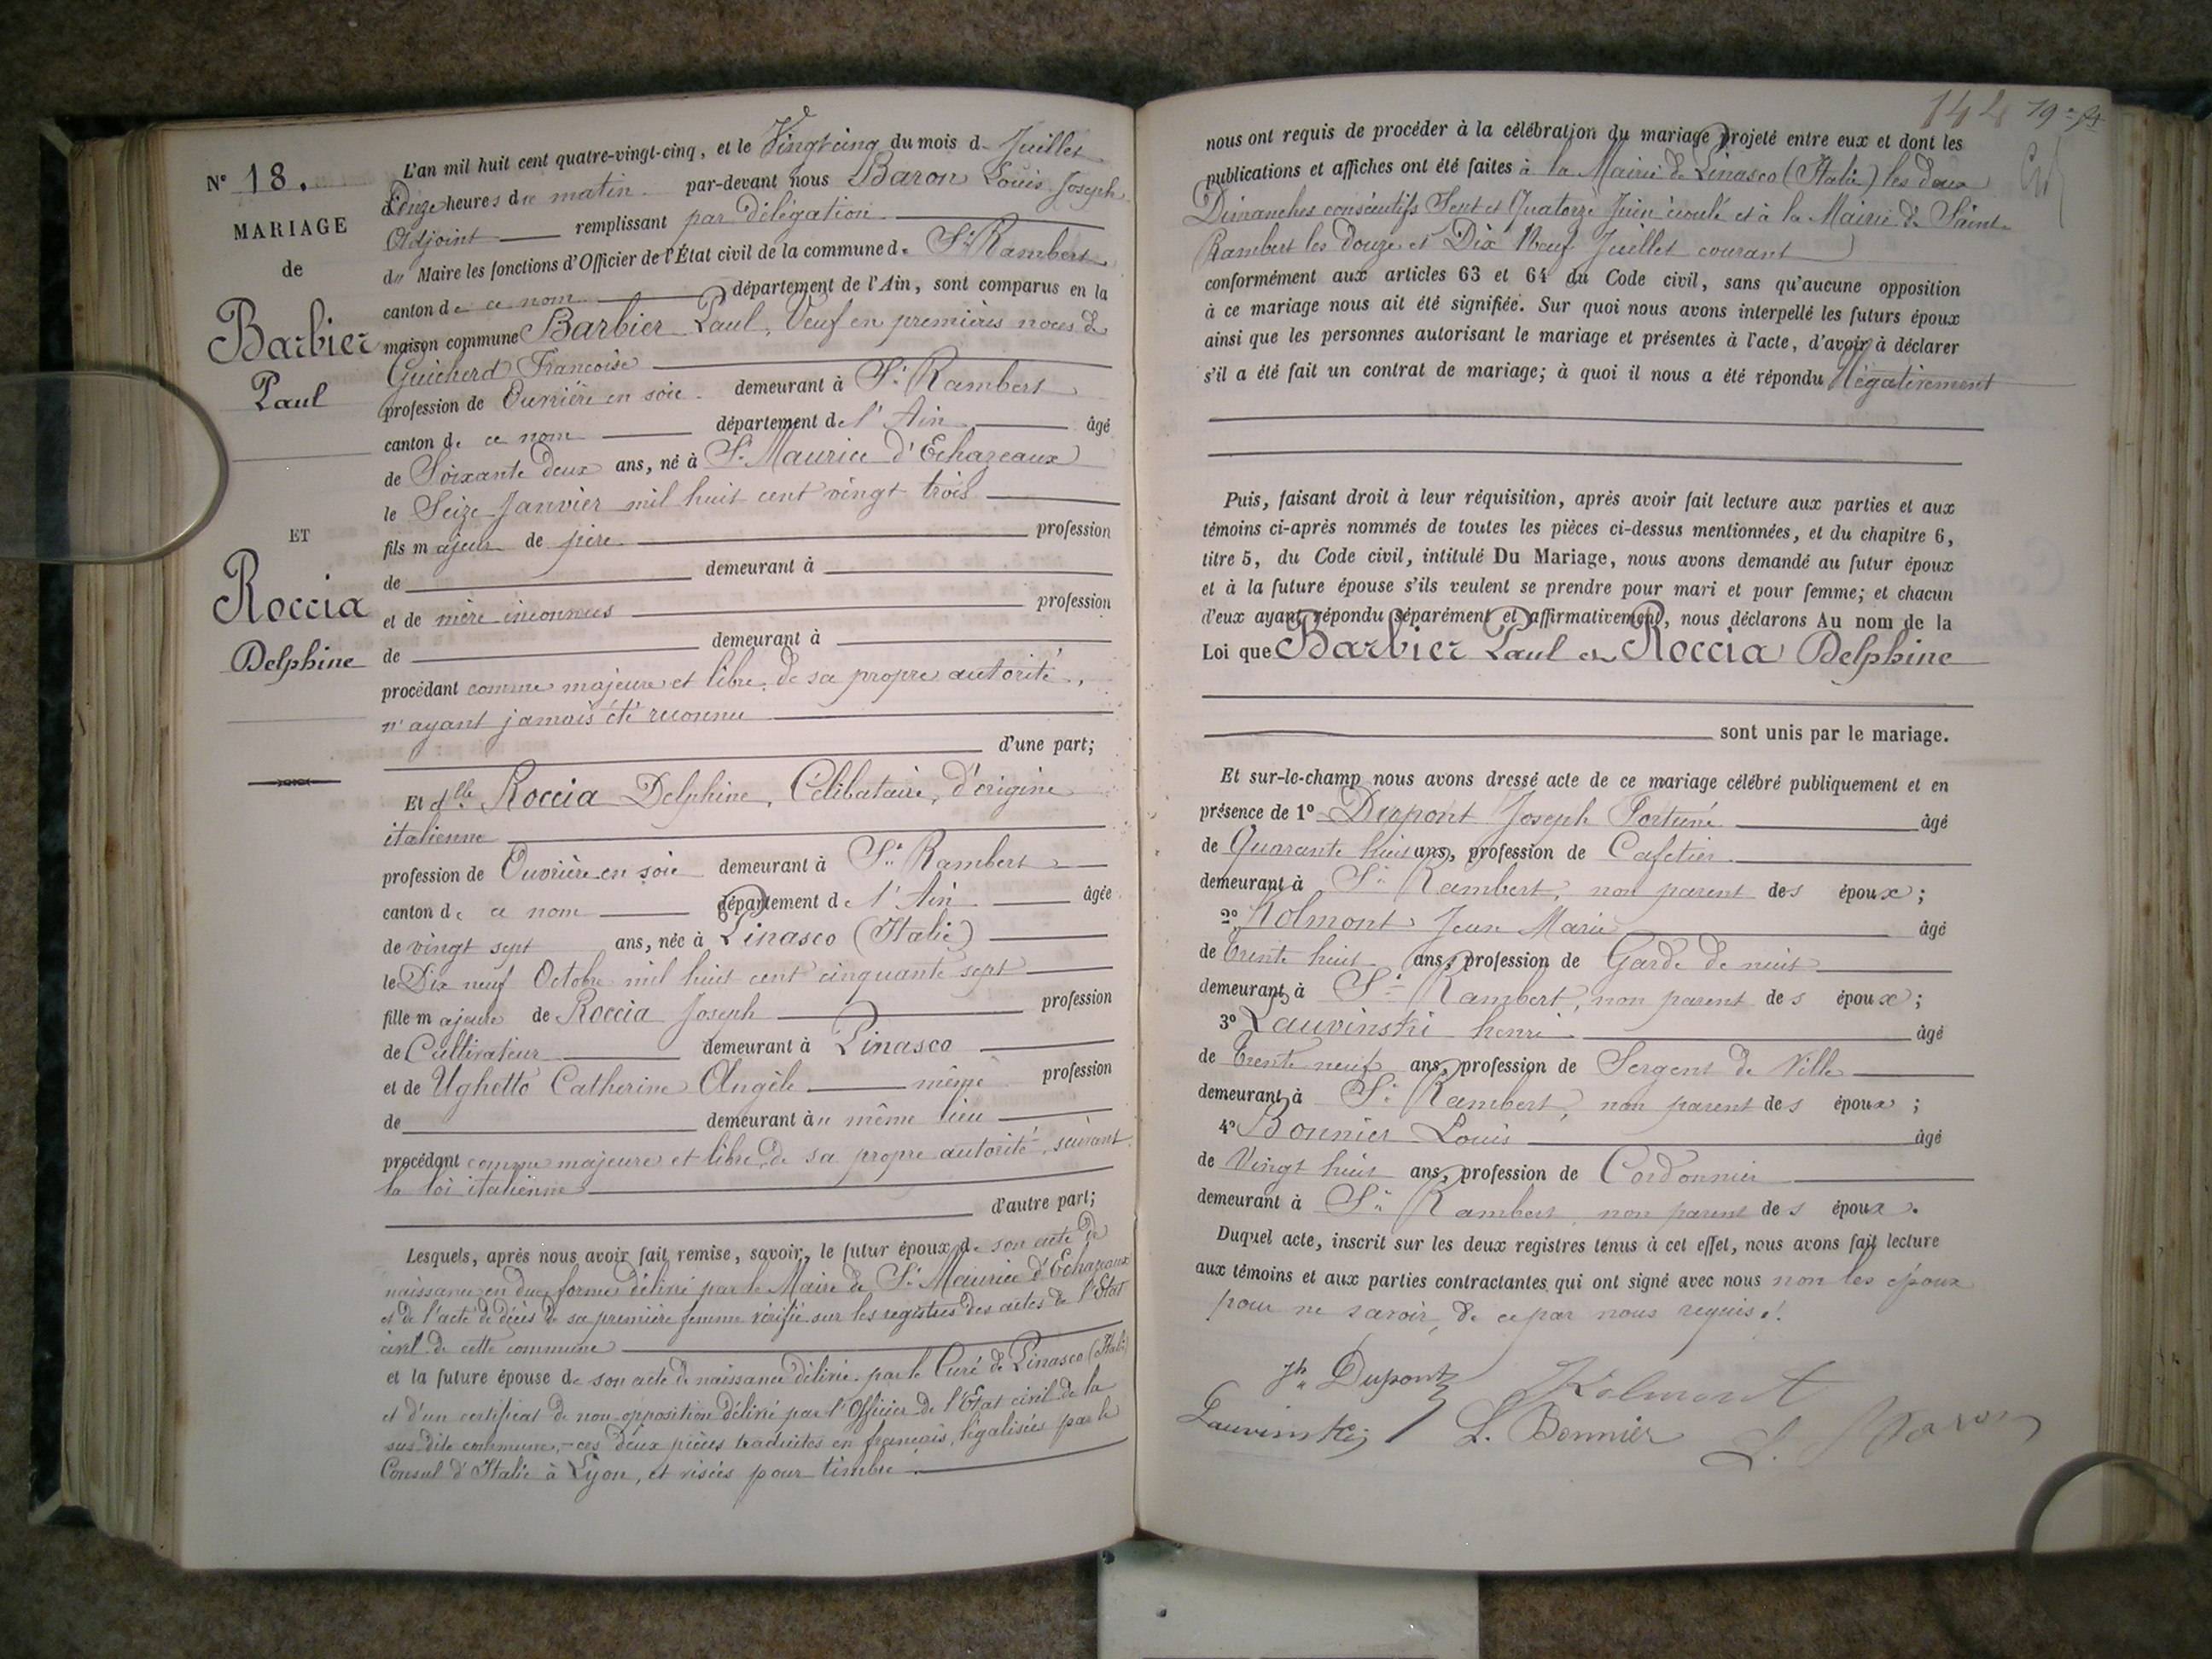 N° 18.
MARIAGE
de
Barbier
Paul
ET
Roccia
Delphine
L'an mil huit cent quatre-vingt-cinq, et le Vingt cinq du mois d. Juillet
à Onze heures du matin par-devant nous Baron Louis Joseph
Adjoint remplissant par délégation
du Maire les fonctions d'Officier de l'État civil de la commune de St Rambert
canton de ce nom département de l'Ain, sont comparus en la
maison commune Barbier Paul, Veuf en premières noces de
Guicherd Françoise
profession de Ouvrière en soie demeurant à St Rambert
canton de ce nom département de l'Ain âgé
de Soixante deux ans, né à St Maurice d'Echazeaux
le Seize Janvier mil huit cent vingt trois
fils majeur de père profession
de demeurant à
et de mère inconnus profession
de demeurant à
procédant comme majeure et libre de sa propre autorité,
n'ayant jamais été reconnu
d'une part;
Et dlle Roccia Delphine, Célibataire, d'origine
italienne
profession de Ouvrière en soie demeurant à St Rambert
canton de ce nom département de l'Ain âgée
de vingt sept ans, née à Pinasco (Italie)
le Dix neuf Octobre mil huit cent cinquante sept
fille majeure de Roccia Joseph profession
de Cultivateur demeurant à Pinasco
et de Ughetto Catherine Angèle même profession
de demeurant au même lieu
procédant comme majeure et libre de sa propre autorité suivant
la loi italienne
d'autre part;
Lesquels, après nous avoir fait remise, savoir, le futur époux de son acte de
naissance en due forme délivré par le Maire de St Maurice d'Echazeaux
et de l'acte de décès de sa première femme vérifié sur les registres des actes de l'Etat
civil de cette commune
et la future épouse de son acte de naissance délivré par le Curé de Pinasco (Italie)
et d'un certificat de non opposition délivré par l'Officier de l'Etat civil de la
sus dite commune, - ces deux pièces traduites en français, légalisées par le
Consul d'Italie à Lyon, et visées pour timbre.
nous ont requis de procéder à la célébration du mariage projeté entre eux et dont les
publications et affiches ont été faites à la Mairie de Pinasco (Italie) les deux
Dimanches consécutifs Sept et Quatorze Juin écoulé et à la Mairie de Saint-
Rambert les douze et Dix Neuf Juillet courant
conformément aux articles 63 et 64 du Code civil, sans qu'aucune opposition
à ce mariage nous ait été signifiée. Sur quoi nous avons interpellé les futurs époux
ainsi que les personnes autorisant le mariage et présentes à l'acte, d'avoir à déclarer
s'il a été fait un contrat de mariage; à quoi il nous a été répondu Négativement
Puis, faisant droit à leur réquisition, après avoir fait lecture aux parties et aux
témoins ci-après nommés de toutes les pièces ci-dessus mentionnées, et du chapitre 6,
titre 5, du Code civil, intitulé Du Mariage, nous avons demandé au futur époux
et à la future épouse s'ils veulent se prendre pour mari et pour femme; et chacun
d'eux ayant répondu séparément et affirmativement, nous déclarons Au nom de la
Loi que Barbier Paul et Roccia Delphine
sont unis par le mariage.
Et sur-le-champ nous avons dressé acte de ce mariage célébré publiquement et en
présence de 1° Dupont Joseph Fortuné âgé
de Quarante huit ans, profession de Cafetier
demeurant à St Rambert, non parent des époux;
2° Kolmont Jean Marie âgé
de trente huit ans, profession de Garde de nuit
demeurant à St Rambert, non parent des époux;
3° Lauvinski henri âgé
de trente neuf ans, profession de Sergent de Ville
demeurant à St Rambert, non parent des époux;
4° Bonnier Louis âgé
de Vingt huit ans, profession de Cordonnier
demeurant à St Rambert, non parent des époux.
Duquel acte, inscrit sur les deux registres tenus à cet effet, nous avons fait lecture
aux témoins et aux parties contractantes qui ont signé avec nous non les époux
pour ne savoir, de ce par nous requis.
Jh Dupont Kolmont
Lauvinski L. Bonnier L. Baron